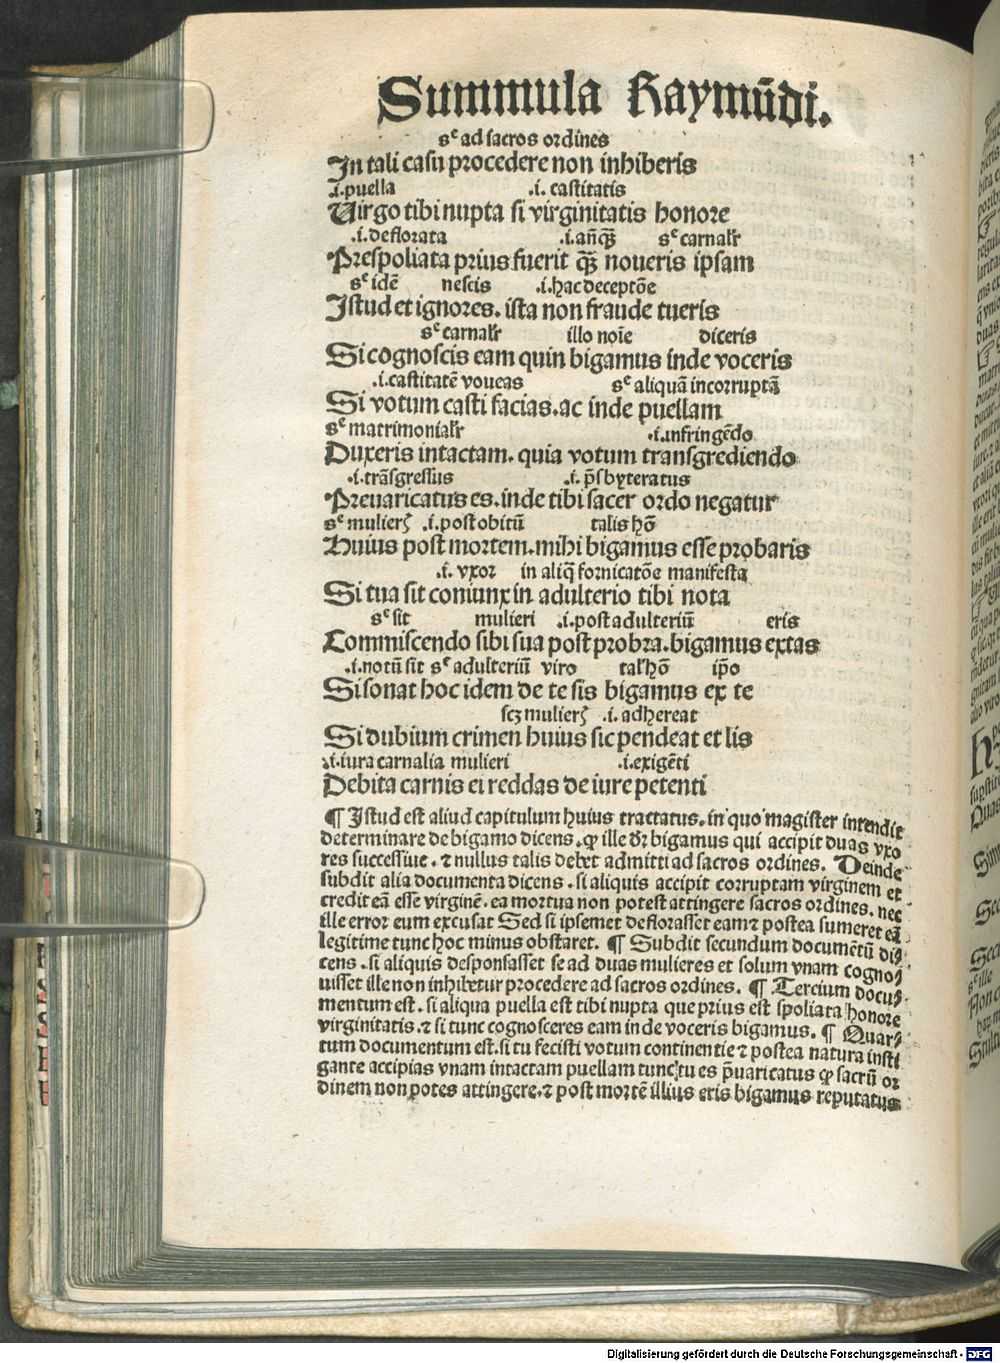 Summula Raymūdi.
sᶜ ad sacros ordines
In tali casu procedere non inhiberis
.i. puella .i. castitatis
Uirgo tibi nupta si virginitatis honore
.i. deflorata .i. añq̄ꝫ sᶜ carnalr̄
Prespoliata prius fuerit q̄ꝫ noueris ipsam
sᶜ idē nescis .i. hac deceptōe
Istud et ignores. ista non fraude tueris
sᶜ carnalr̄ illo noīe diceris
Si cognoscis eam quin bigamus inde voceris
.i. castitatē voueas sᶜ aliquā incorruptā
Si votum casti facias. ac inde puellam
sᶜ matrimonialr̄ .i. infringēdo
Duxeris intactam. quia votum transgrediendo
.i. trāsgressus .i. p̄sbyteratus
Preuaricatus es. inde tibi sacer ordo negatur
sᶜ mulierꝭ .i. post obitū talis hō
Huius post mortem. mihi bigamus esse probaris
.i. vxor in aliq̄ fornicatōe manifesta
Si tua sit coniunx in adulterio tibi nota
sᶜ sit mulieri .i. post adulteriū eris
Commiscendo sibi sua post probra. bigamus extas
.i. notū sit sᶜ adulteriū viro tal' hō ip̄o
Si sonat hoc idem de te sis bigamus ex te
scꝫ mulierꝭ .i. adhereat
Si dubium crimen huius sic pendeat et lis
.i. iura carnalia mulieri .i. exigēti
Debita carnis ei reddas de iure petenti
¶ Istud est aliud capitulum huius tractatus. in quo magister intendit
determinare de bigamo dicens. ꝙ ille dr̄ bigamus qui accipit duas vxo
res successiue. ⁊ nullus talis debet admitti ad sacros ordines. Deinde
subdit alia documenta dicens. si aliquis accipit corruptam virginem et
credit eā esse virginē. ea mortua non potest attingere sacros ordines. nec
ille error eum excusat Sed si ipsemet deflorasset eam ⁊ postea sumeret eā
legitime tunc hoc minus obstaret. ¶ Subdit secundum documētū di⸗
cens. si aliquis desponsasset se ad duas mulieres et solum vnam cogno⸗
uisset ille non inhibetur procedere ad sacros ordines. ¶ Tercium docu⸗
mentum est. si aliqua puella est tibi nupta que prius est spoliata honore
virginitatis. ⁊ si tunc cognosceres eam inde voceris bigamus. ¶ Quar⸗
tum documentum est. si tu fecisti votum continentie ⁊ postea natura insti
gante accipias vnam intactam puellam tunc tu es p̄uaricatus ꝙ sacrū or
dinem non potes attingere. ⁊ post mortē illius eris bigamus reputatus
Digitalisierung gefördert durch die Deutsche Forschungsgemeinschaft - DFG